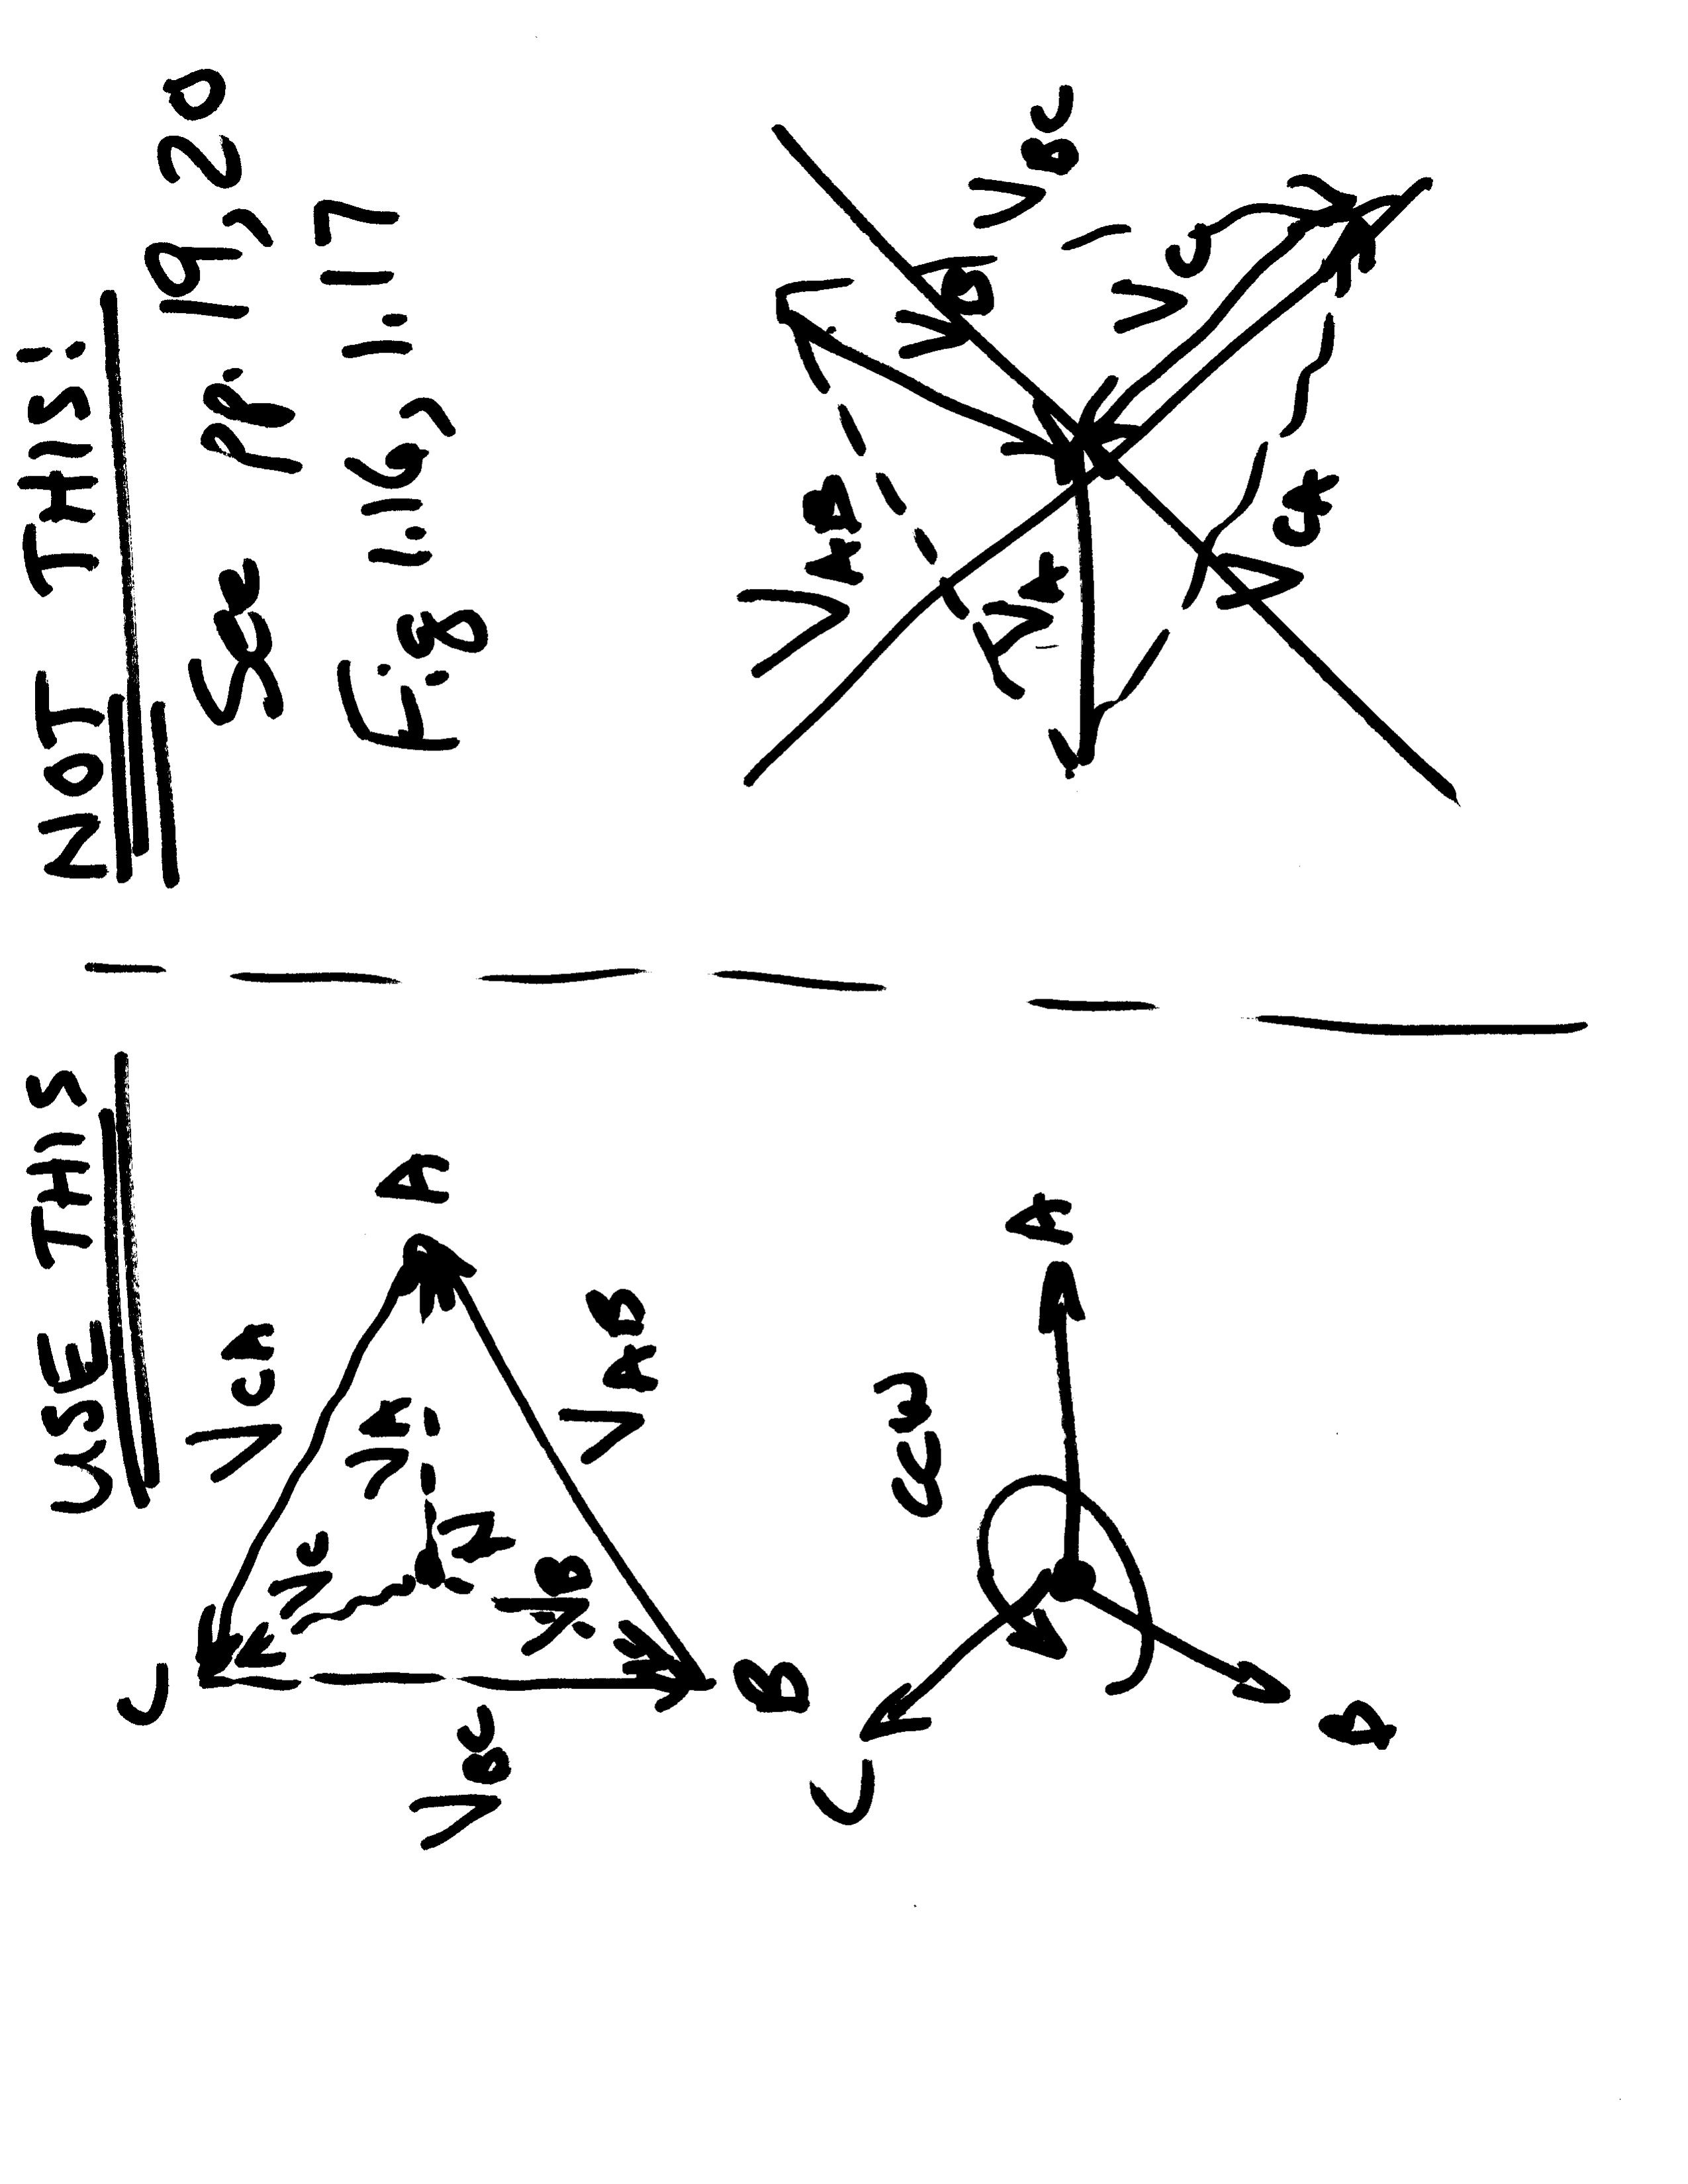 USE THIS
C
VCA
A
VC
VA
N
VB
VAB
VBC
B
C
CCW
A
B
NOT THIS!
See pp. 19,20
Fig 1.16, 1.17
VAB
VB
VBC
VA
VC
CA